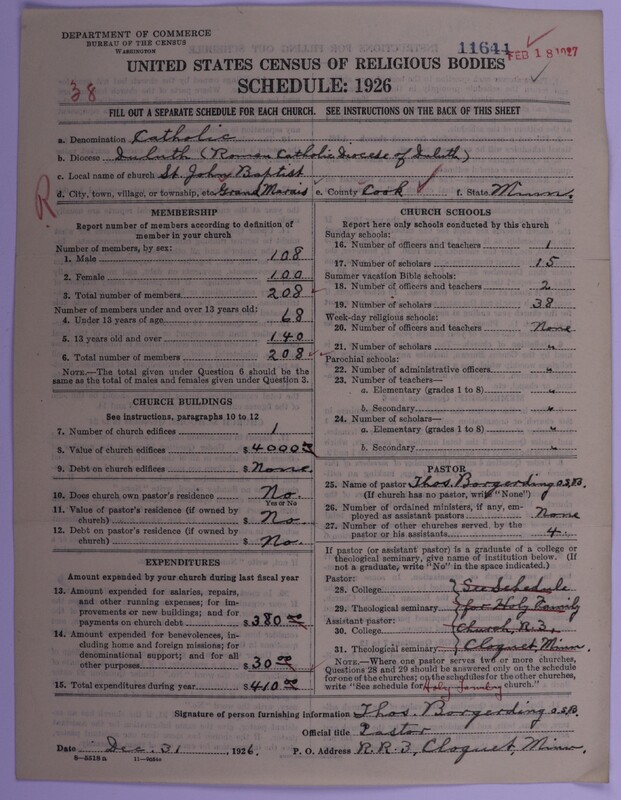 DEPARTMENT OF COMMERCE
BUREAU OF THE CENSUS
WASHINGTON
11641
FEB 18 1927
UNITED STATES CENSUS OF RELIGIOUS BODIES
38
SCHEDULE: 1926
FILL OUT A SEPARATE SCHEDULE FOR EACH CHURCH. SEE INSTRUCTIONS ON THE BACK OF THIS SHEET
a. Denomination Catholic
b. Diocese Duluth (Roman Catholic Diocese of Duluth)
c. Local name of church St. John Baptist
R
d. City, town, village, or township, etc. Grand Marais e. County Cook f. State Minn.
MEMBERSHIP
Report number of members according to definition of
member in your church
Number of members, by sex:
1. Male 108
2. Female 100
3. Total number of members 208
Number of members under and over 13 years old:
4. Under 13 years of age 68
5. 13 years old and over 140
6. Total number of members 208
NOTE.—The total given under Question 6 should be the
same as the total of males and females given under Question 3.
CHURCH BUILDINGS
See instructions, paragraphs 10 to 12
7. Number of church edifices 1
8. Value of church edifices $4000
9. Debt on church edifices $None
10. Does church own pastor's residence No.
Yes or No
11. Value of pastor's residence (if owned by
church) $No.
12. Debt on pastor's residence (if owned by
church) $No.
EXPENDITURES
Amount expended by your church during last fiscal year
13. Amount expended for salaries, repairs,
and other running expenses; for im-
provements or new buildings; and for
payments on church debt $380 00
14. Amount expended for benevolences, in-
cluding home and foreign missions; for
denominational support; and for all
other purposes $30 00
15. Total expenditures during year $410 00
CHURCH SCHOOLS
Report here only schools conducted by this church
Sunday schools:
16. Number of officers and teachers 1
17. Number of scholars 15
Summer vacation Bible schools:
18. Number of officers and teachers 2
19. Number of scholars 38
Week-day religious schools:
20. Number of officers and teachers None
21. Number of scholars "
Parochial schools:
22. Number of administrative officers "
23. Number of teachers—
a. Elementary (grades 1 to 8) "
b. Secondary "
24. Number of scholars—
a. Elementary (grades 1 to 8) "
b. Secondary "
PASTOR
25. Name of pastor Thos. Borgerding O.S.B.
(If church has no pastor, write "None")
26. Number of ordained ministers, if any, em-
ployed as assistant pastors None
27. Number of other churches served by the
pastor or his assistants 4
If pastor (or assistant pastor) is a graduate of a college or
theological seminary, give name of institution below. (If
not a graduate, write "No" in the space indicated.)
Pastor:
28. College See Schedule
29. Theological seminary for Holy Family
Assistant pastor:
30. College Church, R.3,
31. Theological seminary Cloquet, Minn.
NOTE.—Where one pastor serves two or more churches,
Questions 28 and 29 should be answered only on the schedule
for one of the churches; on the schedules for the other churches,
write "See schedule for Holy Family church."
Signature of person furnishing information Thos. Borgerding O.S.B.
Official title Pastor
Date Dec. 31, 1926. P. O. Address R.R. 3, Cloquet, Minn